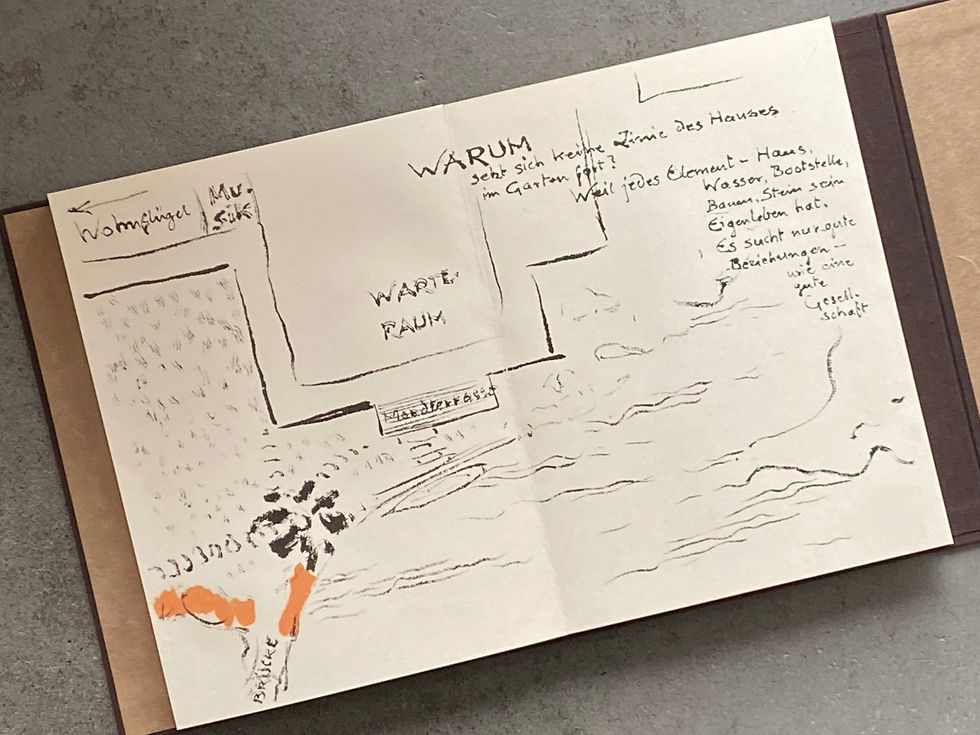 WARUM
setzt sich keine Linie des Hauses
im Garten fort?
Weil jedes Element - Haus,
Wasser, Bootstelle,
Bauen, Stein sein
Eigenleben hat.
Es sucht nur gute
Beziehungen -
wie eine
gute
Gesell-
schaft
Wohnflügel
Mu-
sik
WARTE-
RAUM
Mondterrasse
BRÜCKE